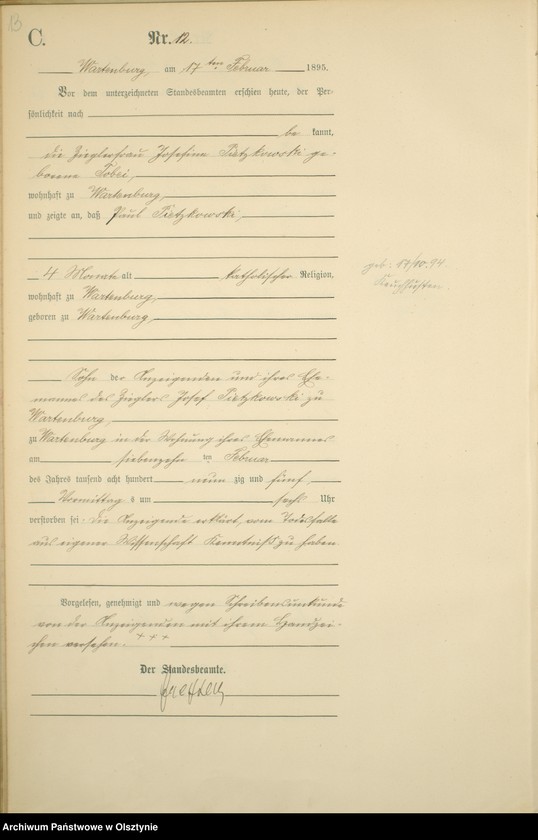 13
C.
Nr. 12.
Wartenburg, am 17 ten Februar 1895.
Vor dem unterzeichneten Standesbeamten erschien heute, der Per-
sönlichkeit nach
be kannt,
die Zieglerfrau Josefine Pietzkowski ge-
borene
wohnhaft zu Wartenburg,
und zeigte an, daß Paul Pietzkowski,
4 Monate alt katholischer Religion,
geb. 17/10.94.
Keuchhusten.
wohnhaft zu Wartenburg,
geboren zu Wartenburg,
Sohn der Anzeigenden und ihres Ehe-
mannes des Zieglers Josef Pietzkowski zu
Wartenburg,
zu Wartenburg in der Wohnung ihres Ehemannes
am siebenzehn ten Februar
des Jahres tausend acht hundert neun zig und fünf,
Vormittag s um sechs Uhr
verstorben sei. Die Anzeigende erklärt, vom Todesfalle
aus eigener Wissenschaft Kenntniß zu haben
Vorgelesen, genehmigt und wegen Schreibensunkunde
von der Anzeigenden mit ihrem Handzei-
chen versehen. + + +
Der Standesbeamte.
Archiwum Państwowe w Olsztynie